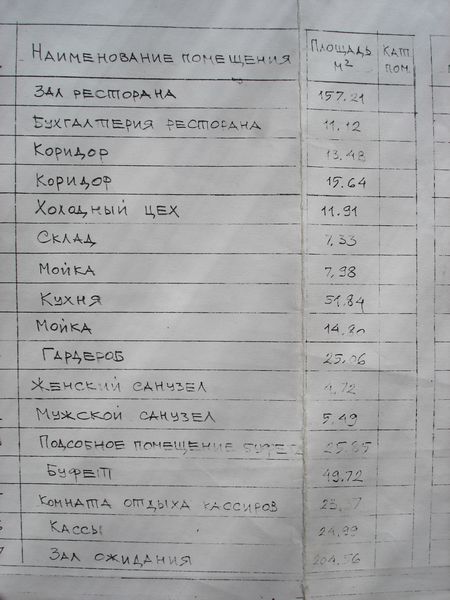 Наименование помещения Площадь м² Кат. пом.
Зал ресторана 157.21
Бухгалтерия ресторана 11.12
Коридор 13.48
Коридор 15.64
Холодный цех 11.91
Склад 7.33
Мойка 7.98
Кухня 51.84
Мойка
Гардероб 25.06
Женский санузел 4.72
Мужской санузел 5.49
Подсобное помещение 25.85
Буфет 49.72
Комната отдыха кассиров
Кассы 24.99
Зал ожидания 204.56